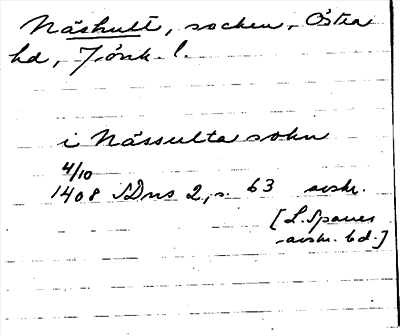 Näshult, socken, Östra
hd, Jönk. l.
i Nässulta sokn
4/10
1408 SDns 2, s. 63 avskr.
[L. Spares
avskr. bd.]